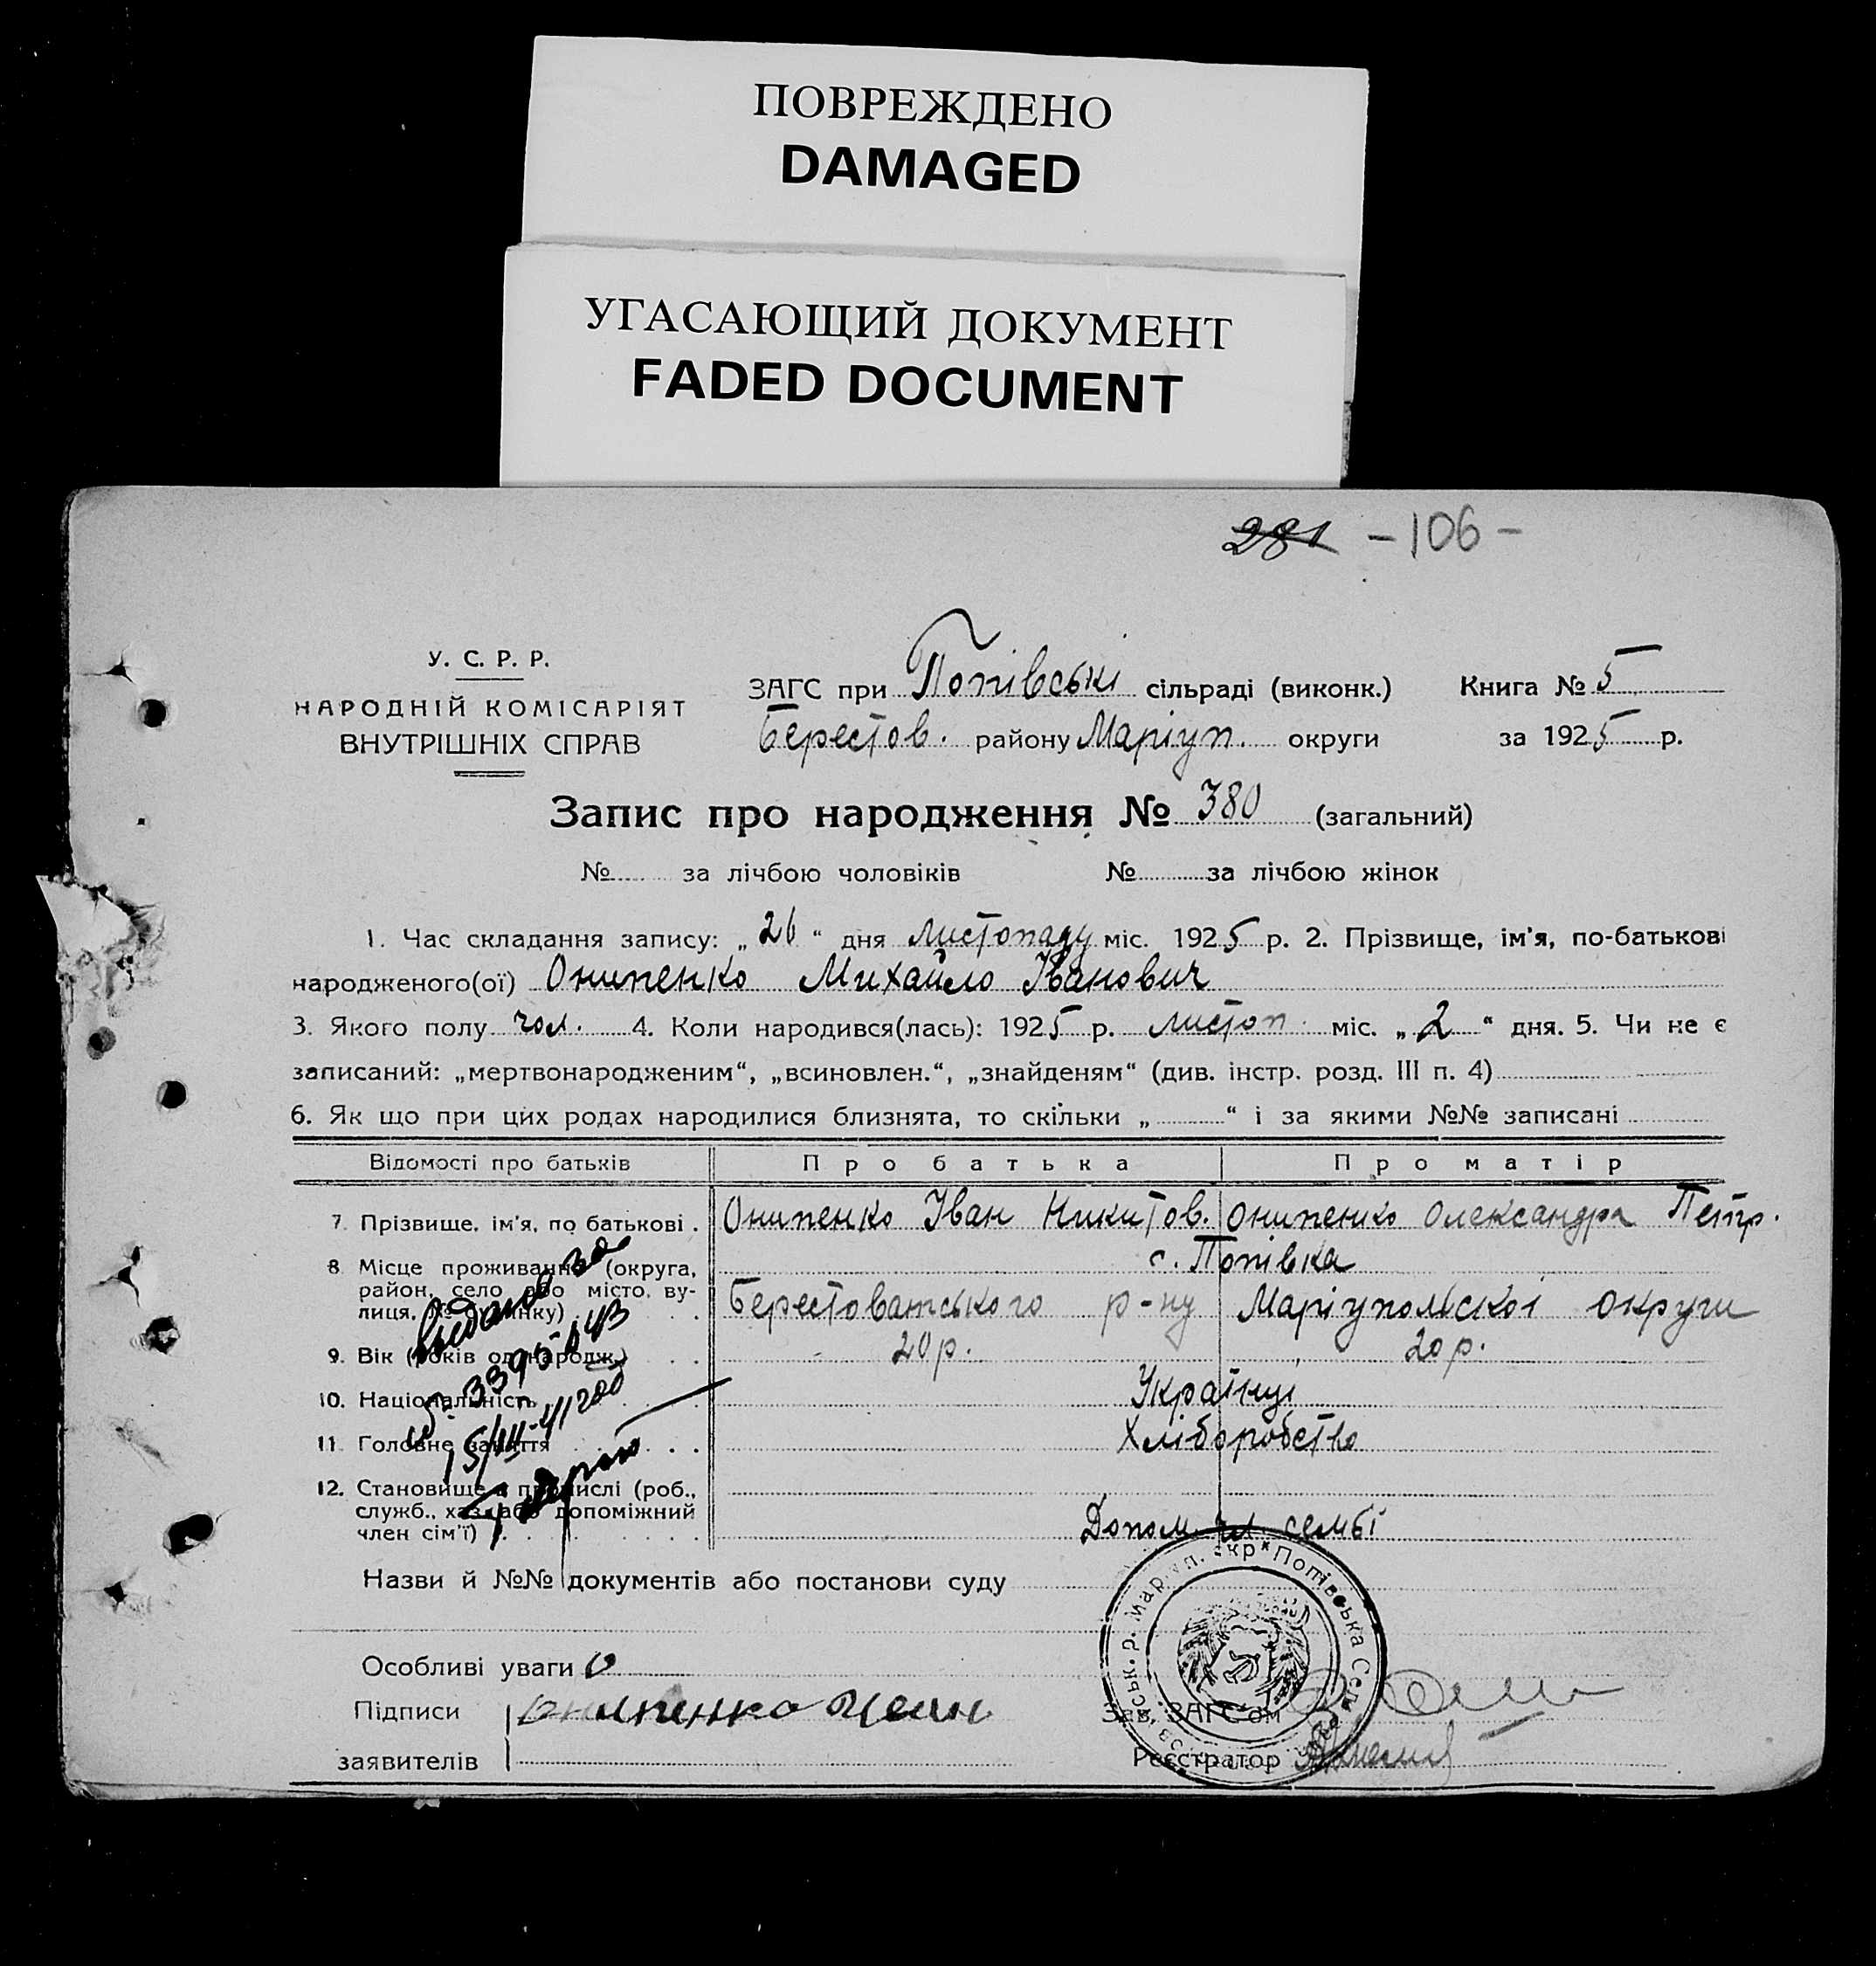 ПОВРЕЖДЕНО
DAMAGED
УГАСАЮЩИЙ ДОКУМЕНТ
FADED DOCUMENT
281 - 106 -
У. С. Р. Р.
НАРОДНІЙ КОМІСАРІЯТ
ВНУТРІШНІХ СПРАВ
ЗАГС при Попівські сільраді (виконк.) Книга № 5
Берестов. району Маріуп. округи за 1925 р.
Запис про народження № 380 (загальний)
№ за лічбою чоловіків № за лічбою жінок
1. Час складання запису: „26“ дня листопаду міс. 1925 р. 2. Прізвище, ім'я, по-батькові
народженого(ої) Онипенко Михайло Іванович
3. Якого полу чол. 4. Коли народився(лась): 1925 р. листоп. міс. „2“ дня. 5. Чи не є
записаний: „мертвонародженим“, „всиновлен.“, „знайденям“ (див. інстр. розд. III п. 4)
6. Як що при цих родах народилися близнята, то скільки „ “ і за якими №№ записані
Відомості про батьків Про батька Про матір
7. Прізвище, ім'я, по батькові . Онипенко Іван Никитов. Онипенко Олександра Петр.
8 Місце проживання (округа, с. Попівка
район, село або місто, вулиця, № будинку) Берестованського р-ну Маріупольскої округи
9. Вік (років од народж.) 20 р. 20 р.
10. Національність Українці
11. Головне заняття Хліборобство
12. Становище в промислі (роб.,
служб., хаз. або допоміжний
член сім'ї) Допом. чл. семьї
Назви й №№ документів або постанови суду
Особливі уваги
Підписи Онипенко
заявителів
Зав. ЗАГС'ом
Реєстратор
Попівська